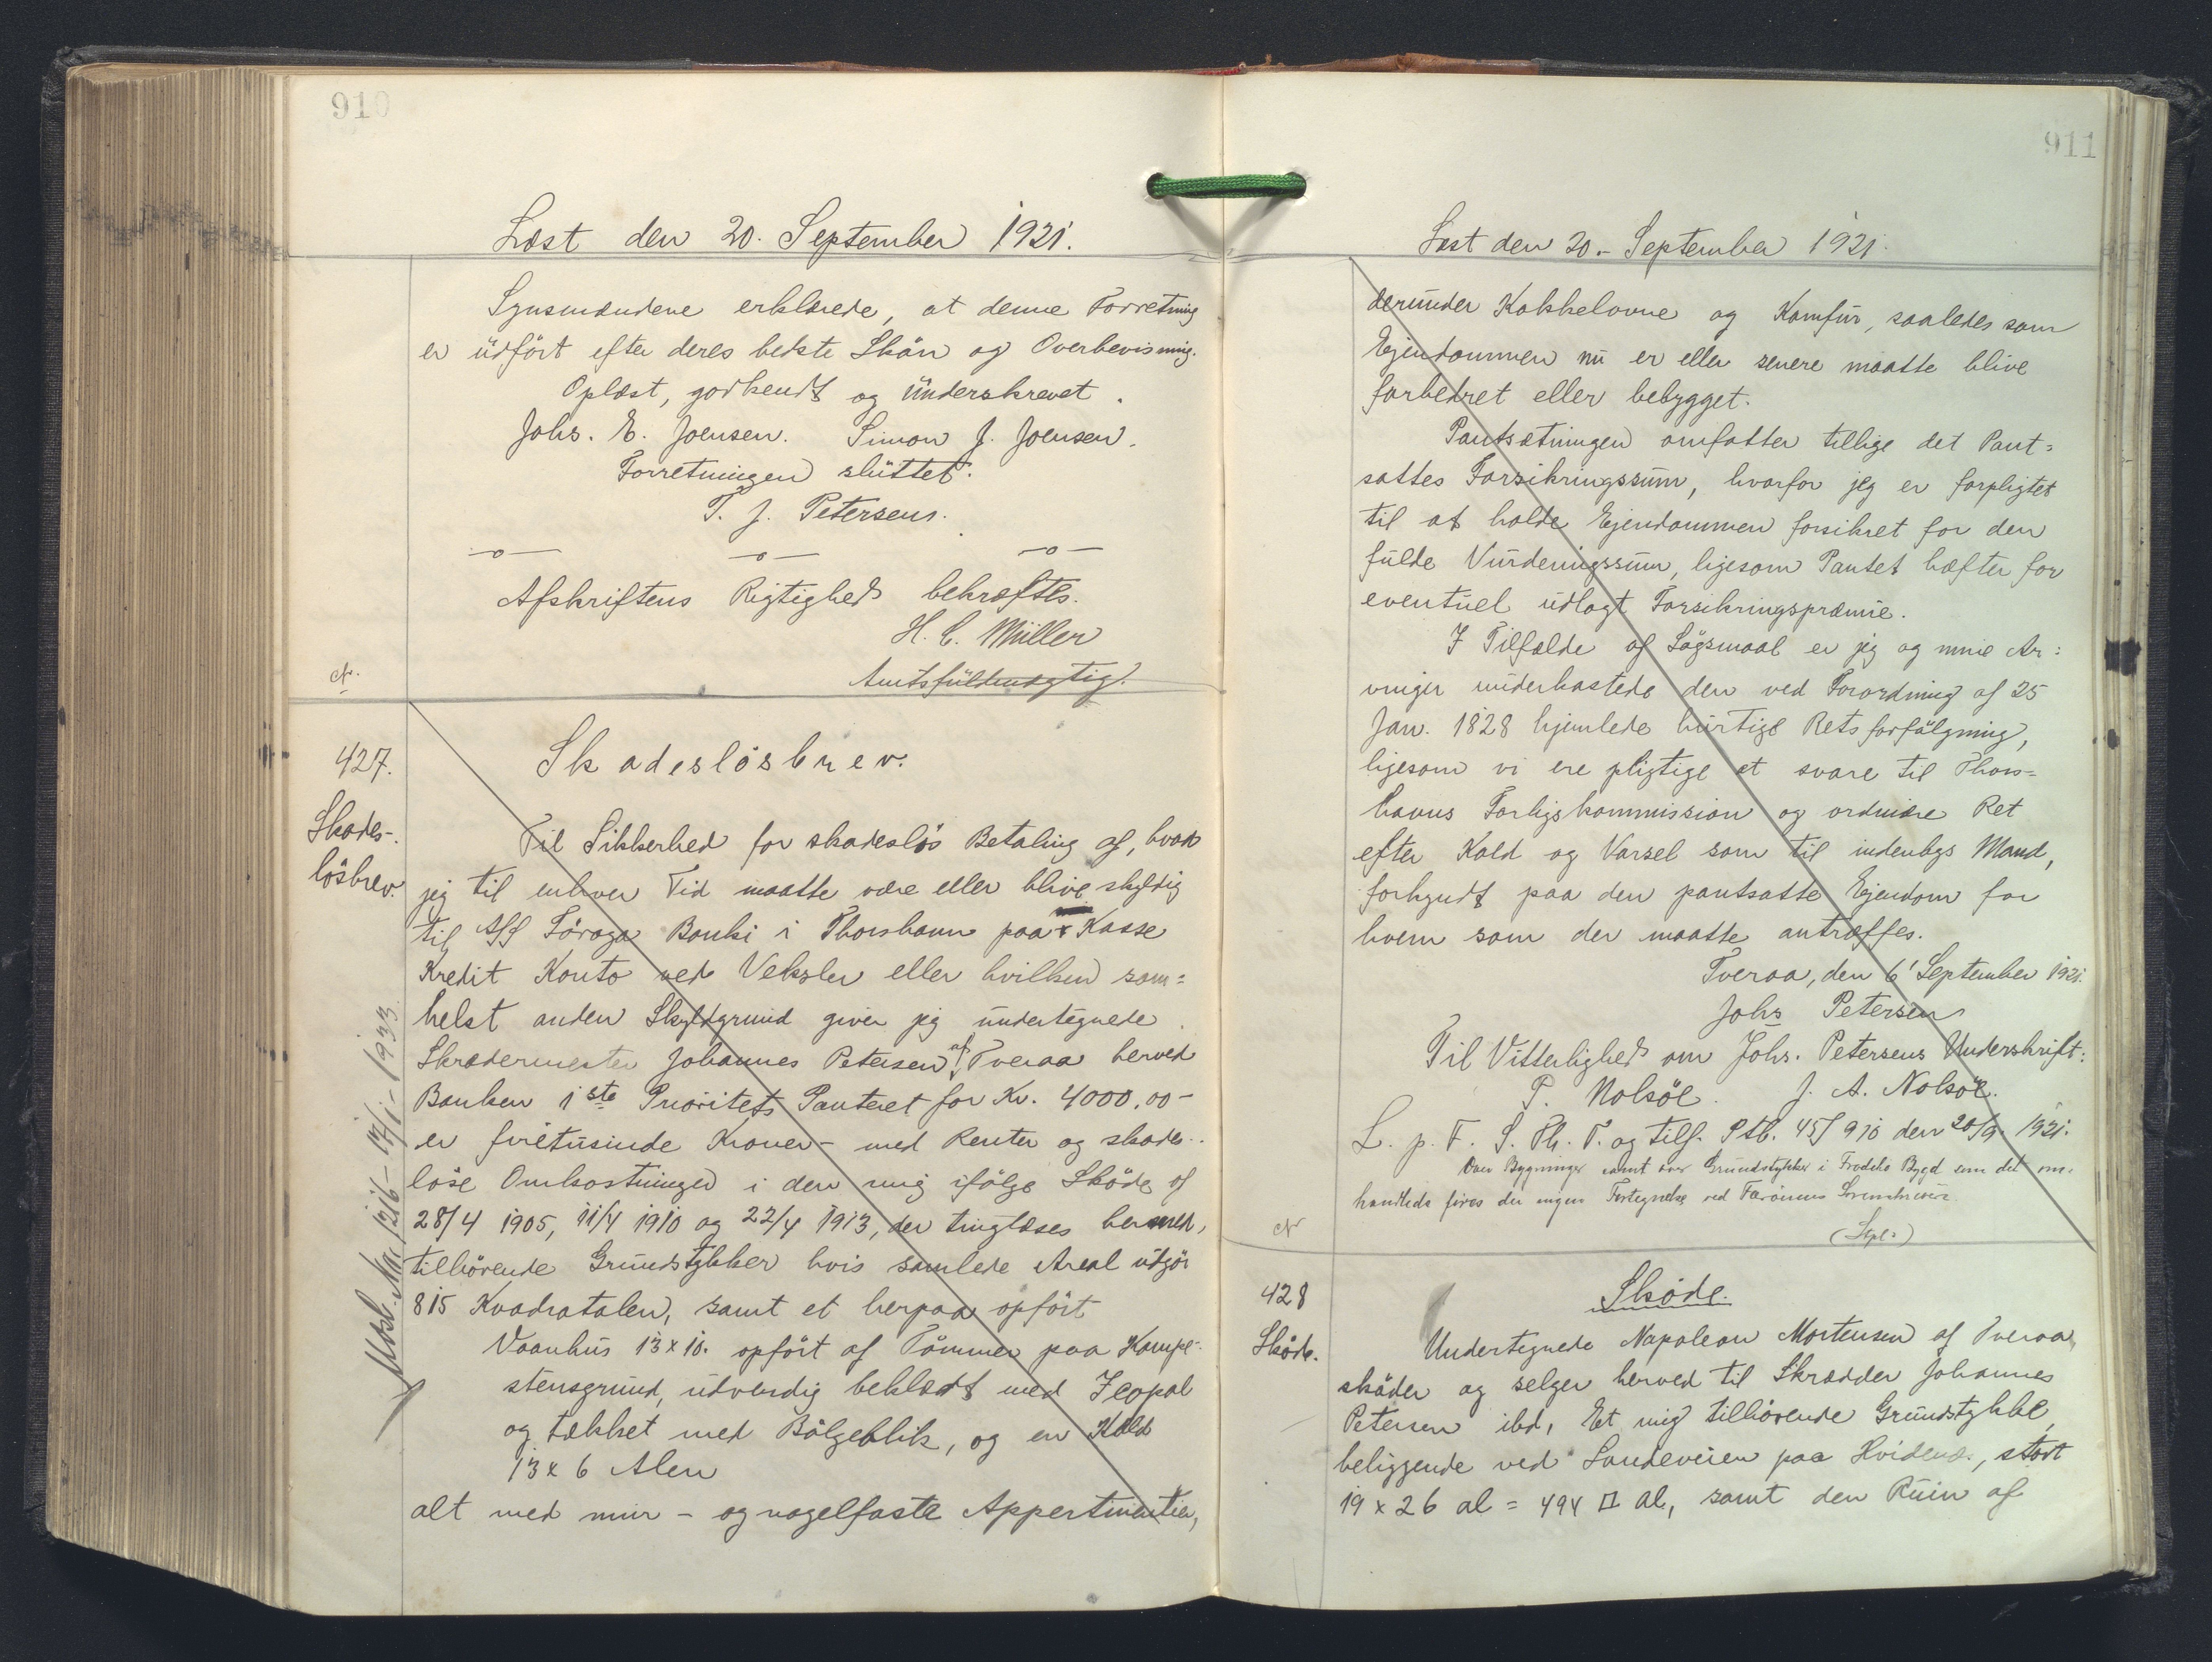 910
Læst den 20. September 1921.
Synsmændene erklærede, at denne Forretning
er udført efter deres bedste Skøn og Overbevisning.
Oplæst, godkendt og underskrevet.
Johs. E. Joensen. Simon J. Joensen.
Forretningen sluttet.
T. J. Petersen.
Afskriftens Rigtighed bekræftes.
H. C. Müller
Amtsfuldmægtig.
427.
Skades-
løsbrev.
Skadesløsbrev.
Til Sikkerhed for skadesløs Betaling af, hvad
jeg til enhver Tid maatte være eller blive skyldig
til A/S Föroya Banki i Thorshavn paa Kasse
Kredit Konto ved Veksler eller hvilken som=
helst anden Skyldgrund giver jeg undertegnede
Skrædermester Johannes Petersen af Tveraa herved
Banken 1ste Prioritets Panteret for Kr. 4000,00 -
er firetusinde Kroner - med Renter og skades-
løse Omkostninger i den mig ifølge Skøde af
28/4 1905, 11/4 1910 og 22/4 1913, der tinglæses hermed,
tilhørende Grundstykker hvis samlede Areal udgør
815 Kvadratalen, samt et herpaa opført
Vaanhus 13 x 10. opført af Tømmer paa Kampe-
stensgrund, udvendig beklædt med Icopal
og tækket med Bølgeblik, og en Kæld
13 x 6 Alen
alt med mur - og nagelfaste Appertinentier,
17/1-1933
911
Læst den 20. September 1921.
derunder Kakkelovne og Komfur, saaledes som
Ejendommen nu er eller senere maatte blive
forbedret eller bebygget.
Pantsætningen omfatter tillige det Pant=
sattes Forsikringssum, hvorfor jeg er forpligtet
til at holde Ejendommen forsikret for den
fulde Vurderingssum, ligesom Pantet hæfter for
eventuel udlagt Forsikringspræmie.
I Tilfælde af Søgsmaal er jeg og mine Ar=
vinger underkastede den ved Forordning af 25
Jan. 1828 hjemlede hurtige Retsforfølgning,
ligesom vi ere pligtige at svare til Thors=
havns Forligskommission og ordinære Ret
efter Kald og Varsel som til indenbys Mand,
forkyndt paa den pantsatte Ejendom for
hvem som der maatte antræffes.
Tveraa, den 6' September 1921.
Johs Petersen
Til Vitterlighed om Johs. Petersens Underskrift:
P. Nolsöe. J. A. Nolsöe.
L. p. F. S. Th. T. og tilf. Ptb. 45/910 den 20/9. 1921.
Over Bygninger samt over Grundstykker i Frodebø Bygd som det om=
handlede føres der ingen Fortegnelse ved Færøernes Sorenskriveri.
428
Skøde.
Skøde.
Undertegnede Napoleon Mortensen af Tveraa,
skøder og selger herved til Skrædder Johannes
Petersen ibd, Et mig tilhørende Grundstykke,
beliggende ved Landeveien paa Hvidenæs, stort
19 x 26 al = 494 □ al, samt den Ruin af